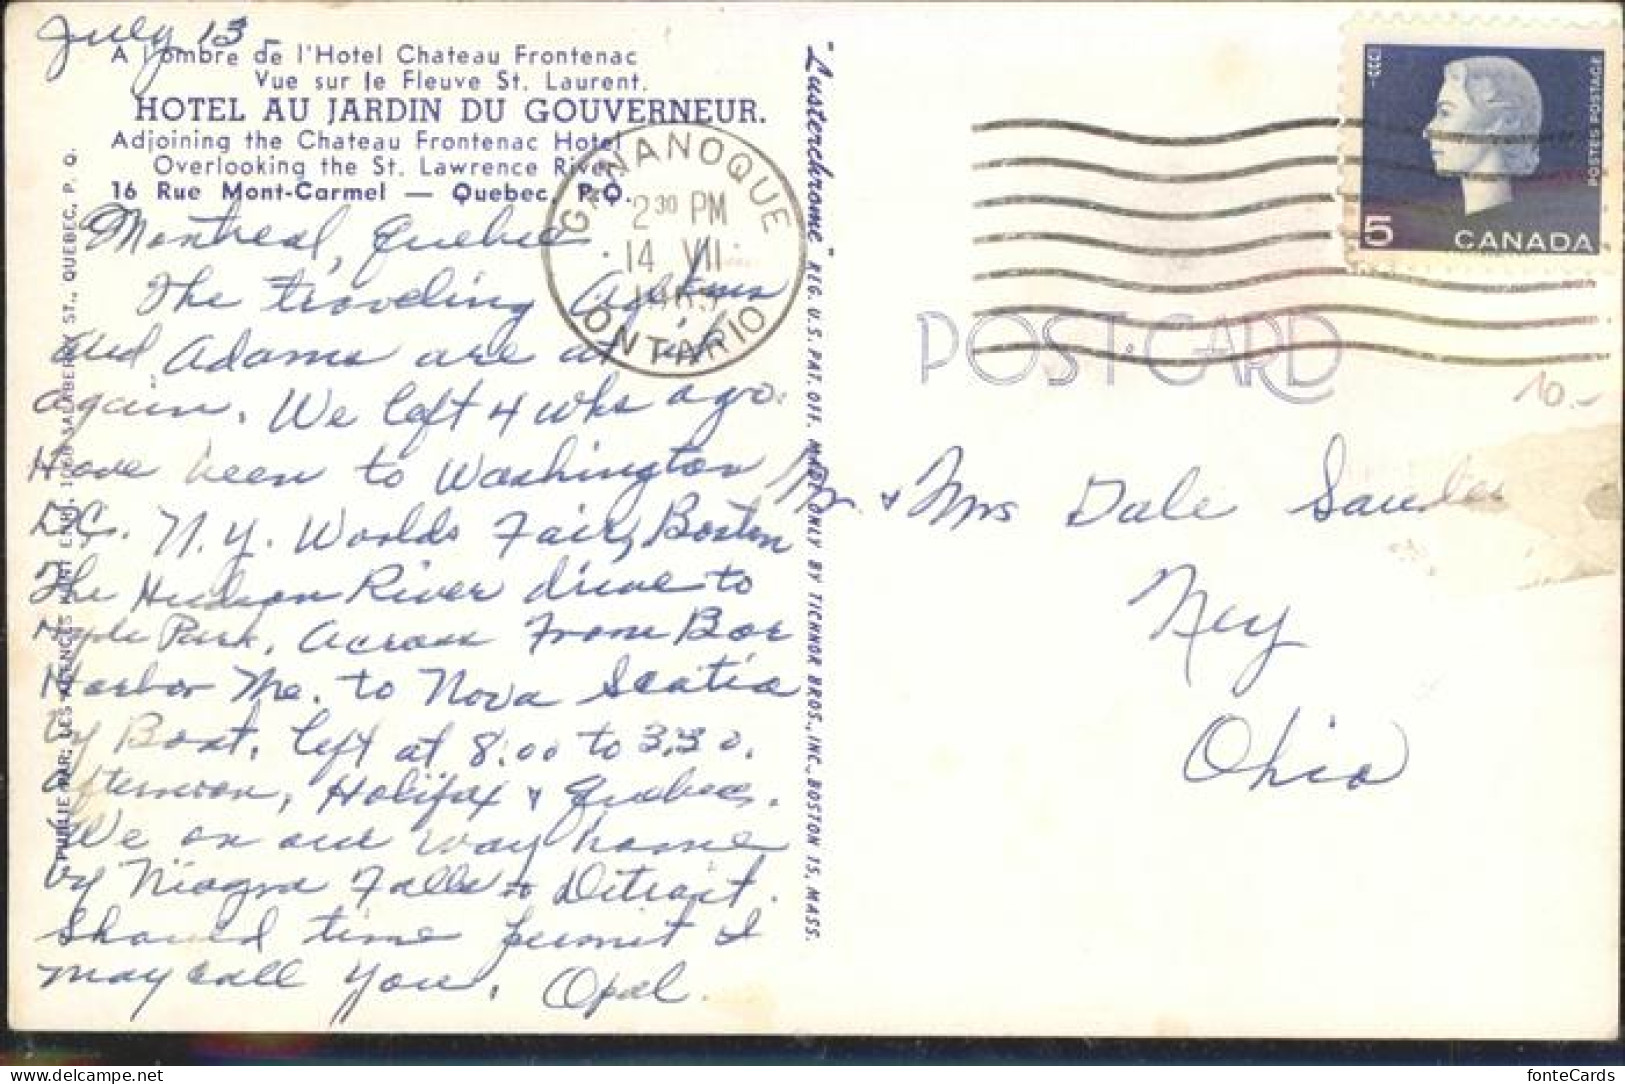 July 13 -
A l'ombre de l'Hotel Chateau Frontenac
Vue sur le Fleuve St. Laurent.
HOTEL AU JARDIN DU GOUVERNEUR.
Adjoining the Chateau Frontenac Hotel
Overlooking the St. Lawrence River
16 Rue Mont-Carmel — Quebec, P.Q.
Montreal, Quebec
The traveling
and Adams are at it
again. We left 4 wks ago.
Have been to Washington
D.C. N.Y. Worlds Fair, Boston
The Hudson River drive to
Hyde Park, Across From Bar
Harbor Me. to Nova Scotia
by Boat, left at 8:00 to 3:30.
afternoon, Halifax & Quebec.
We on our way home
by Niagra Falls & Detroit.
Should time permit I
may call you. Opal.
PUBLIE PAR: LES AGENCES ENR., 1060 SALABERRY ST., QUEBEC, P. Q.
GANANOQUE
2 30 PM
14 VII
ONTARIO
"Lusterchrome" REG. U.S. PAT. OFF. MADE ONLY BY TICHNOR BROS., INC., BOSTON 15, MASS.
POST CARD
POSTES POSTAGE
5 CANADA
10.-
Mr. & Mrs Dale
Ney
Ohio
fonteCards